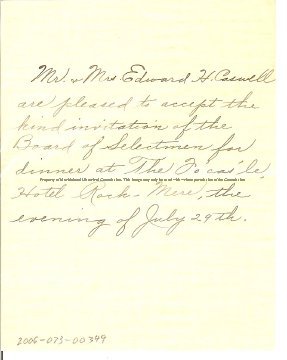 Mr. & Mrs. Edward H. Caswell
are pleased to accept the
kind invitation of the
Board of Selectmen for
dinner at The Fo'cas'le,
Hotel Rock-Mere, the
evening of July 29th.
2006-073-00349